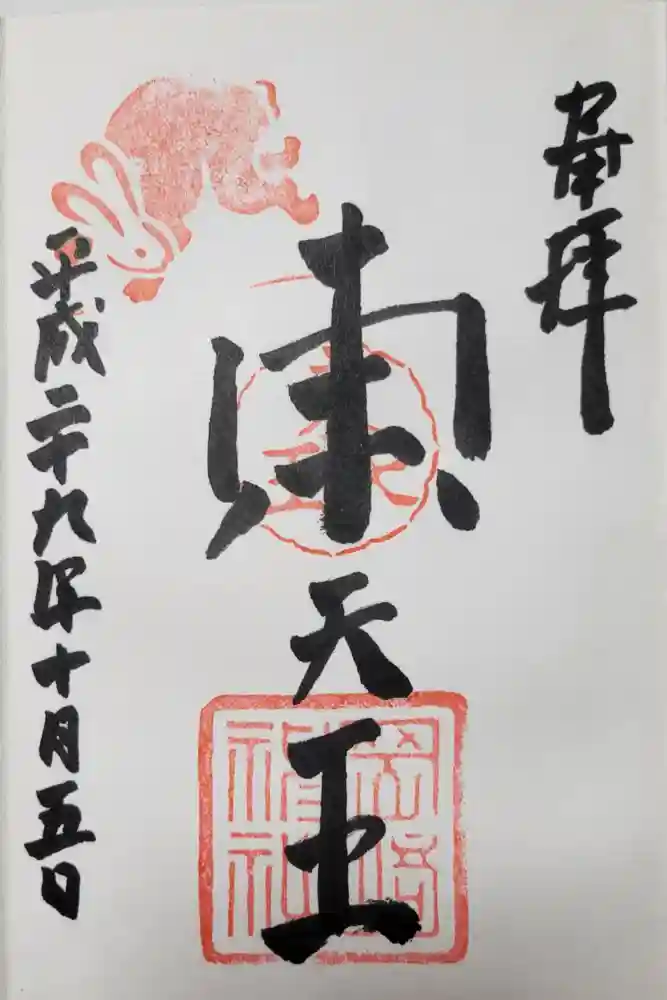 奉拝
東天王
岡崎
神社
平成二十九年十月五日